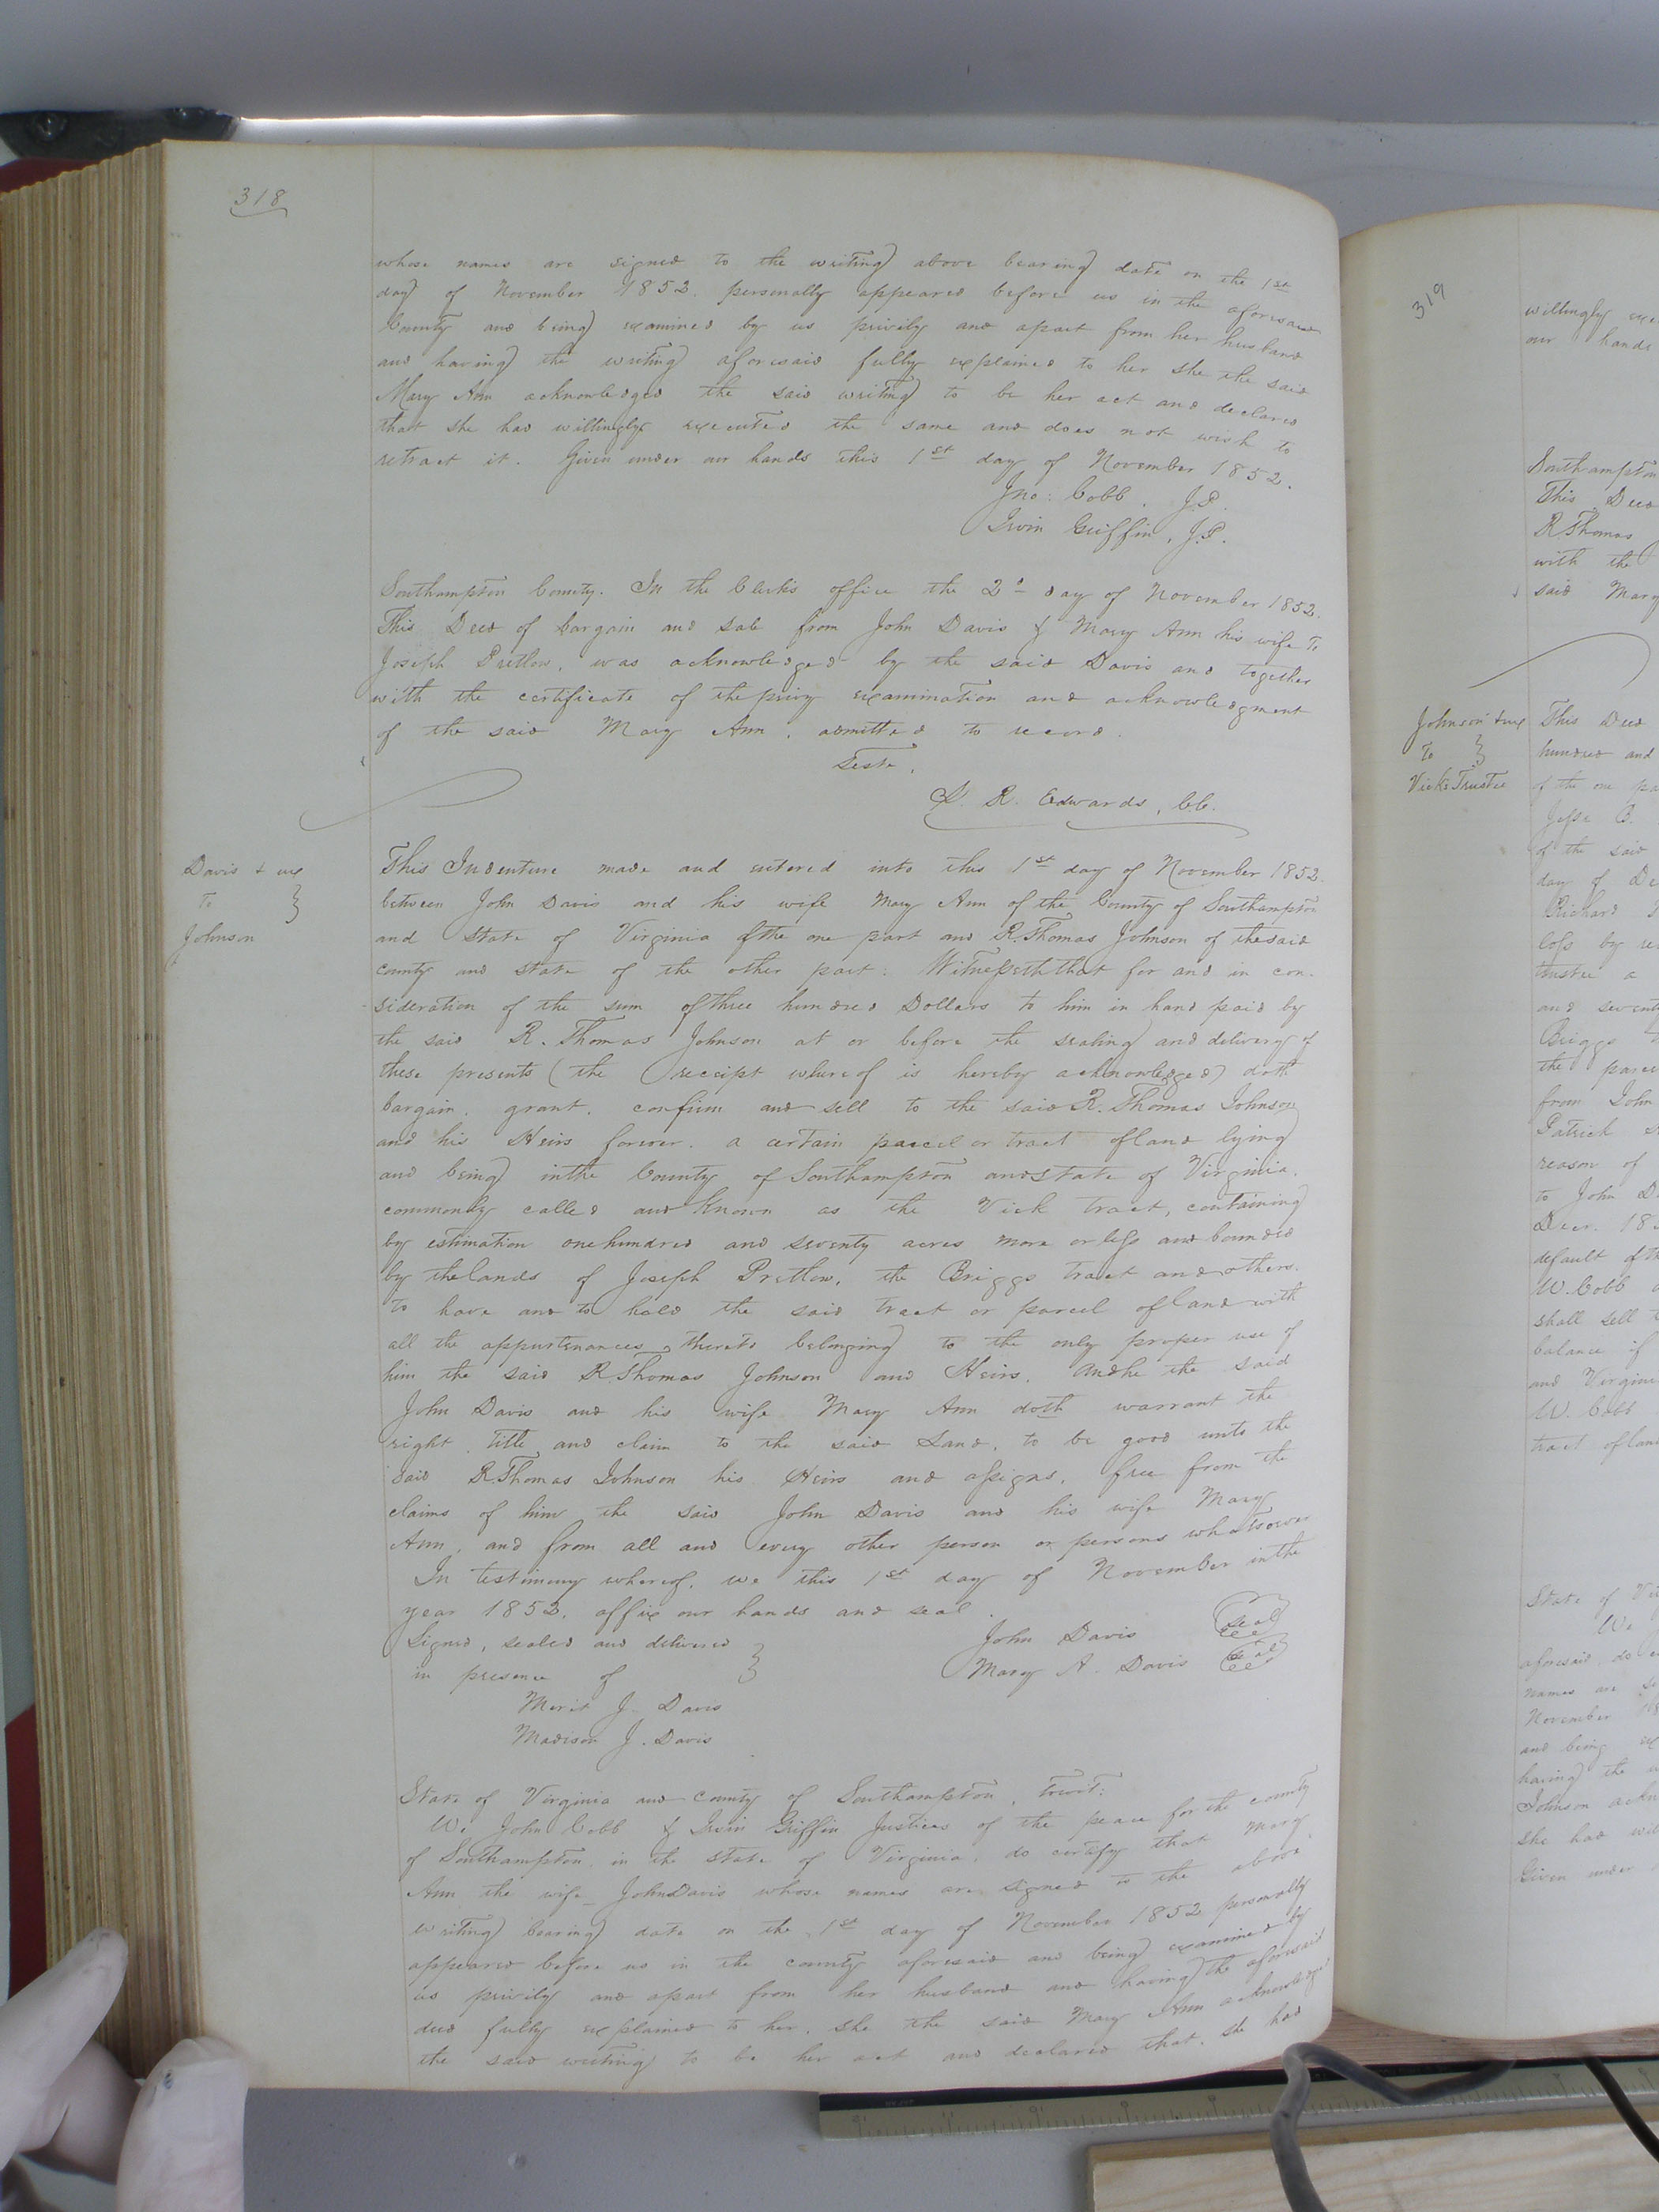 318
whose names are signed to the writing above bearing date on the 1st
day of November 1852. personally appeared before us in the aforesaid
County and being examined by us privily and apart from her husband
and having the writing aforesaid fully explained to her she the said
Mary Ann acknowledged the said writing to be her act and declared
that she had willingly executed the same and does not wish to
retract it. Given under our hands this 1st day of November 1852.
Jno: Cobb. J.P.
Irvin Griffin, J.P.
Southampton County. In the Clerk's office the 2d day of November 1852.
This Deed of bargain and sale from John Davis & Mary Ann his wife To
Joseph Pretlow, was acknowledged by the said Davis and together
with the certificate of the privy examination and acknowledgment
of the said Mary Ann, admitted to record.
Teste,
L. R. Edwards, CC.
Davis & ux
To
Johnson
This Indenture made and entered into this 1st day of November 1852.
between John Davis and his wife Mary Ann of the County of Southampton
and State of Virginia of the one part and R. Thomas Johnson of the said
county and state of the other part: Witnesseth that for and in con-
sideration of the sum of three hundred Dollars to him in hand paid by
the said R. Thomas Johnson at or before the sealing and delivery of
these presents (the receipt whereof is hereby acknowledged) doth
bargain, grant, confirm and sell to the said R. Thomas Johnson
and his Heirs forever. a certain parcel or tract of land lying
and being in the County of Southampton and state of Virginia.
commonly called and known as the Vick tract, containing
by estimation one hundred and seventy acres more or less and bounded
by the lands of Joseph Pretlow, the Briggs tract and others.
to have and to hold the said tract or parcel of land with
all the appurtenances thereto belonging to the only proper use of
him the said R. Thomas Johnson and Heirs. and he the said
John Davis and his wife Mary Ann doth warrant the
right, title, and claim to the said Land, to be good unto the
said R. Thomas Johnson his Heirs and assigns, free from the
claims of him the said John Davis and his wife Mary
Ann, and from all and every other person or persons whatsoever
In testimony whereof, we this 1st day of November in the
year 1852, affix our hands and seal.
Signed, sealed and delivered
in presence of
John Davis seal
Mary A. Davis seal
Merit J. Davis
Madison J. Davis
State of Virginia and County of Southampton, towit:
We John Cobb & Irvin Griffin Justices of the peace for the county
of Southampton, in the state of Virginia, do certify that Mary
Ann the wife John Davis whose names are signed to the above
writing bearing date on the 1st day of November 1852 personally
appeared before us in the county aforesaid and being examined by
us privily and apart from her husband and having the aforesaid
deed fully explained to her, she the said Mary Ann acknowledged
the said writing to be her act and declared that she had
319
willingly
our hands
Southampton
This Deed
R. Thomas
with the
said Mary
Johnson & ux
To
Vicks Trustee
This Deed
hundred and
of the one
Jesse B.
of the said
day of
Richard
loss by
trustee a
and
Briggs
the
from John
Patrick
reason of
to John
Decr. 18
default of
W. Cobb
shall sell
balance if
and
W. Cobb
tract of land
State of
We
aforesaid do
names are
November
and being
having the
Johnson
she had
Given under